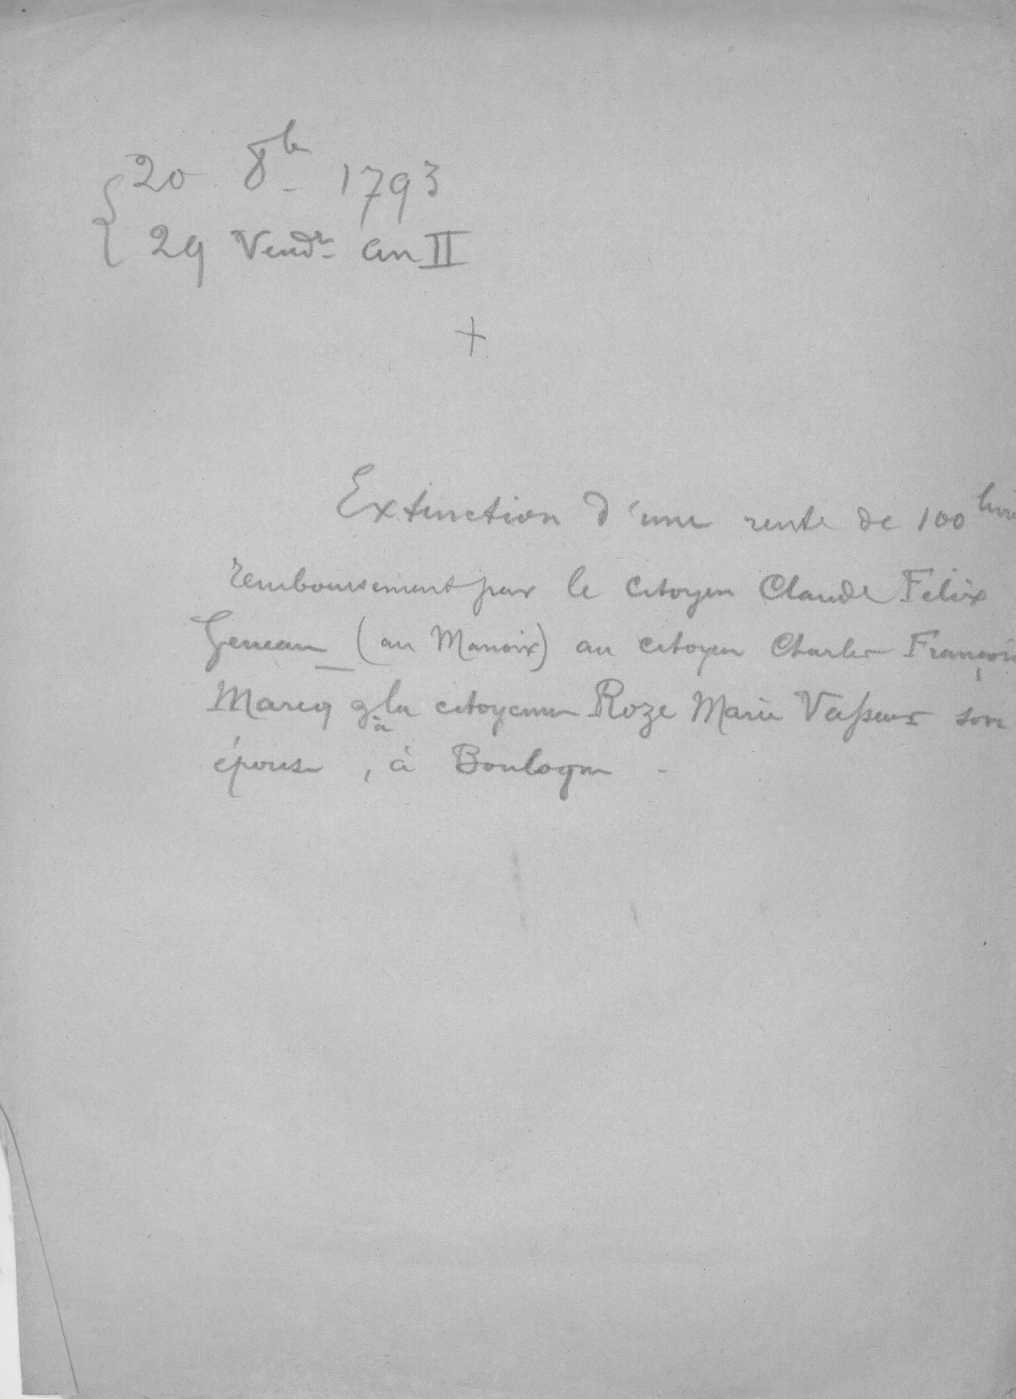 20 8bre 1793
29 Vendre An II
+
Extinction d'une rente de 100 livres
remboursement par le citoyen Claude Felix
Geneau (au Manoir) au citoyen Charles François
Marcq & à la citoyenne Roze Marie Vasseur son
épouse, à Boulogne -